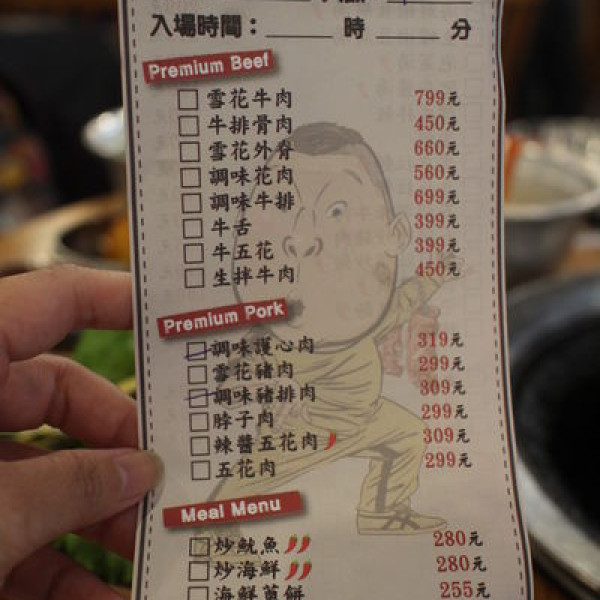 入場時間：_____ 時 _____ 分
Premium Beef
雪花牛肉 799元
牛排骨肉 450元
雪花外脊 660元
調味花肉 560元
調味牛排 699元
牛舌 399元
牛五花 399元
生拌牛肉 450元
Premium Pork
調味護心肉 319元
雪花豬肉 299元
調味豬排肉 309元
脖子肉 299元
辣醬五花肉 309元
五花肉 299元
Meal Menu
炒魷魚 280元
炒海鮮 280元
海鮮煎餅 255元